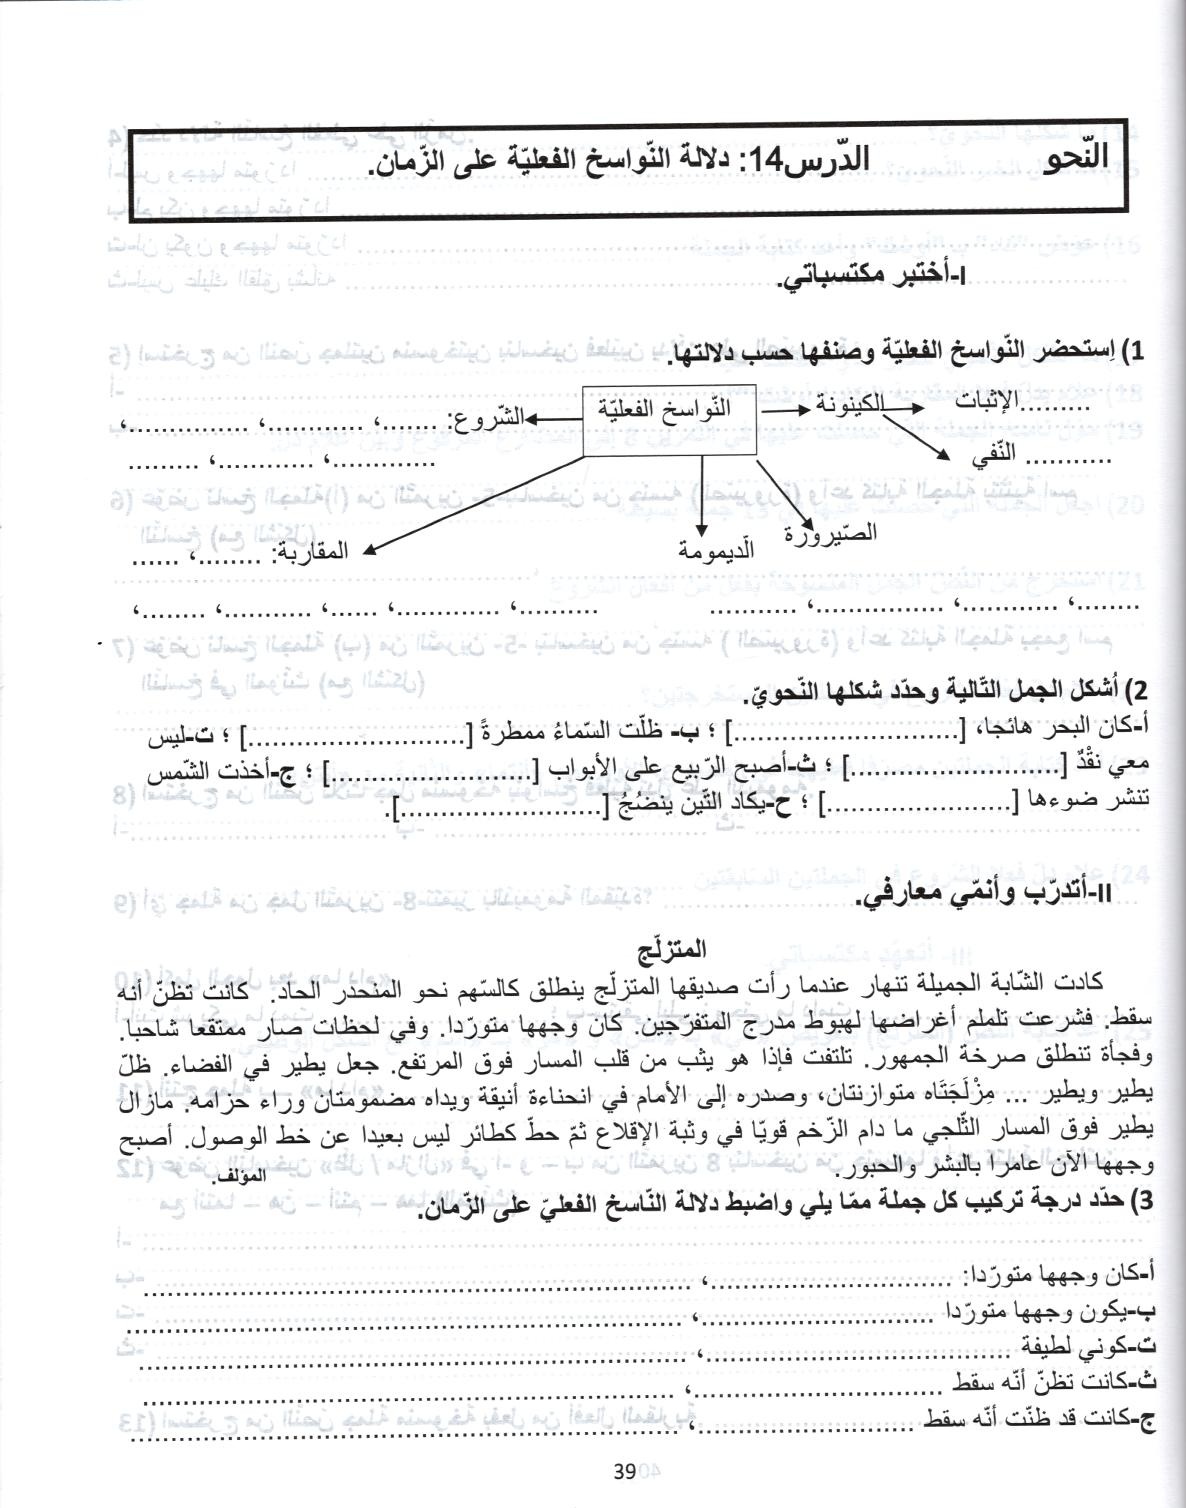 النّحو الدّرس14: دلالة النّواسخ الفعليّة على الزّمان.
I-أختبر مكتسباتي.
1) اِستحضر النّواسخ الفعليّة وصنفها حسب دلالتها.
النّواسخ الفعليّة
الكينونة
الإثبات..........
النّفي ...........
الشّروع: .......، ............، ...............،
.............، ............، .........
الصّيرورة
الّديمومة
المقاربة: ........، ......
........، ............، ................، ...........
..........، .............، ......، ...........، .........،
2) أشكل الجمل التّالية وحدّد شكلها النّحويّ.
أ-كان البحر هائجا، [............................] ؛ ب- ظلّت السّماءُ ممطرةً [............................] ؛ ت-ليس
معي نقْدٌ [...........................] ؛ ث-أصبح الرّبيع على الأبواب [..........................] ؛ ج-أخذت الشّمس
تنشر ضوءها [.......................] ؛ ح-يكاد التّين ينضُجُ [.........................].
II-أتدرّب وأنمّي معارفي.
المتزلّج
كادت الشّابة الجميلة تنهار عندما رأت صديقها المتزلّج ينطلق كالسّهم نحو المنحدر الحاد. كانت تظنّ أنه
سقط. فشرعت تلملم أغراضها لهبوط مدرج المتفرّجين. كان وجهها متورّدا. وفي لحظات صار ممتقعا شاحبا.
وفجأة تنطلق صرخة الجمهور. تلتفت فإذا هو يثب من قلب المسار فوق المرتفع. جعل يطير في الفضاء. ظلّ
يطير ويطير ... مِزْلَجَتَاه متوازنتان، وصدره إلى الأمام في انحناءة أنيقة ويداه مضمومتان وراء حزامه. مازال
يطير فوق المسار الثّلجي ما دام الزّخم قويّا في وثبة الإقلاع ثمّ حطّ كطائر ليس بعيدا عن خط الوصول. أصبح
وجهها الآن عامرا بالبشر والحبور. المؤلف.
3) حدّد درجة تركيب كل جملة ممّا يلي واضبط دلالة النّاسخ الفعليّ على الزّمان.
أ-كان وجهها متورّدا: ..............................، ......................................................................
ب-يكون وجهها متورّدا ..............................، ......................................................................
ت-كوني لطيفة ......................................، ......................................................................
ث-كانت تظنّ أنّه سقط ..............................، ....................................................................
ج-كانت قد ظنّت أنّه سقط ..........................، ....................................................................
39